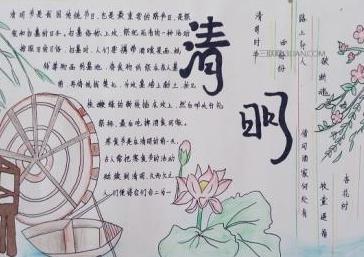 清明节是我国传统节日,也是最重要的祭节日,是祭
祖和扫墓的日子。扫墓俗称上坟,祭祀死者的一种活动
按照旧的习俗,扫墓时,人们要携带酒食果品,纸钱
等物品到墓地,将食物供祭在亲人墓
前,再将纸钱焚化,为坟墓培上新土,折几
枝嫩绿的新枝插在坟上,然后叩头行礼
祭拜,最后吃掉酒食回家。
寒食节在清明的前一天,
古人常把寒食节的活动
延续到清明,久而久之,
人们便将它们合二为一
清明
清明时节
雨纷纷
路上行人
欲断魂
借问酒家何处有
牧童遥指
杏花村